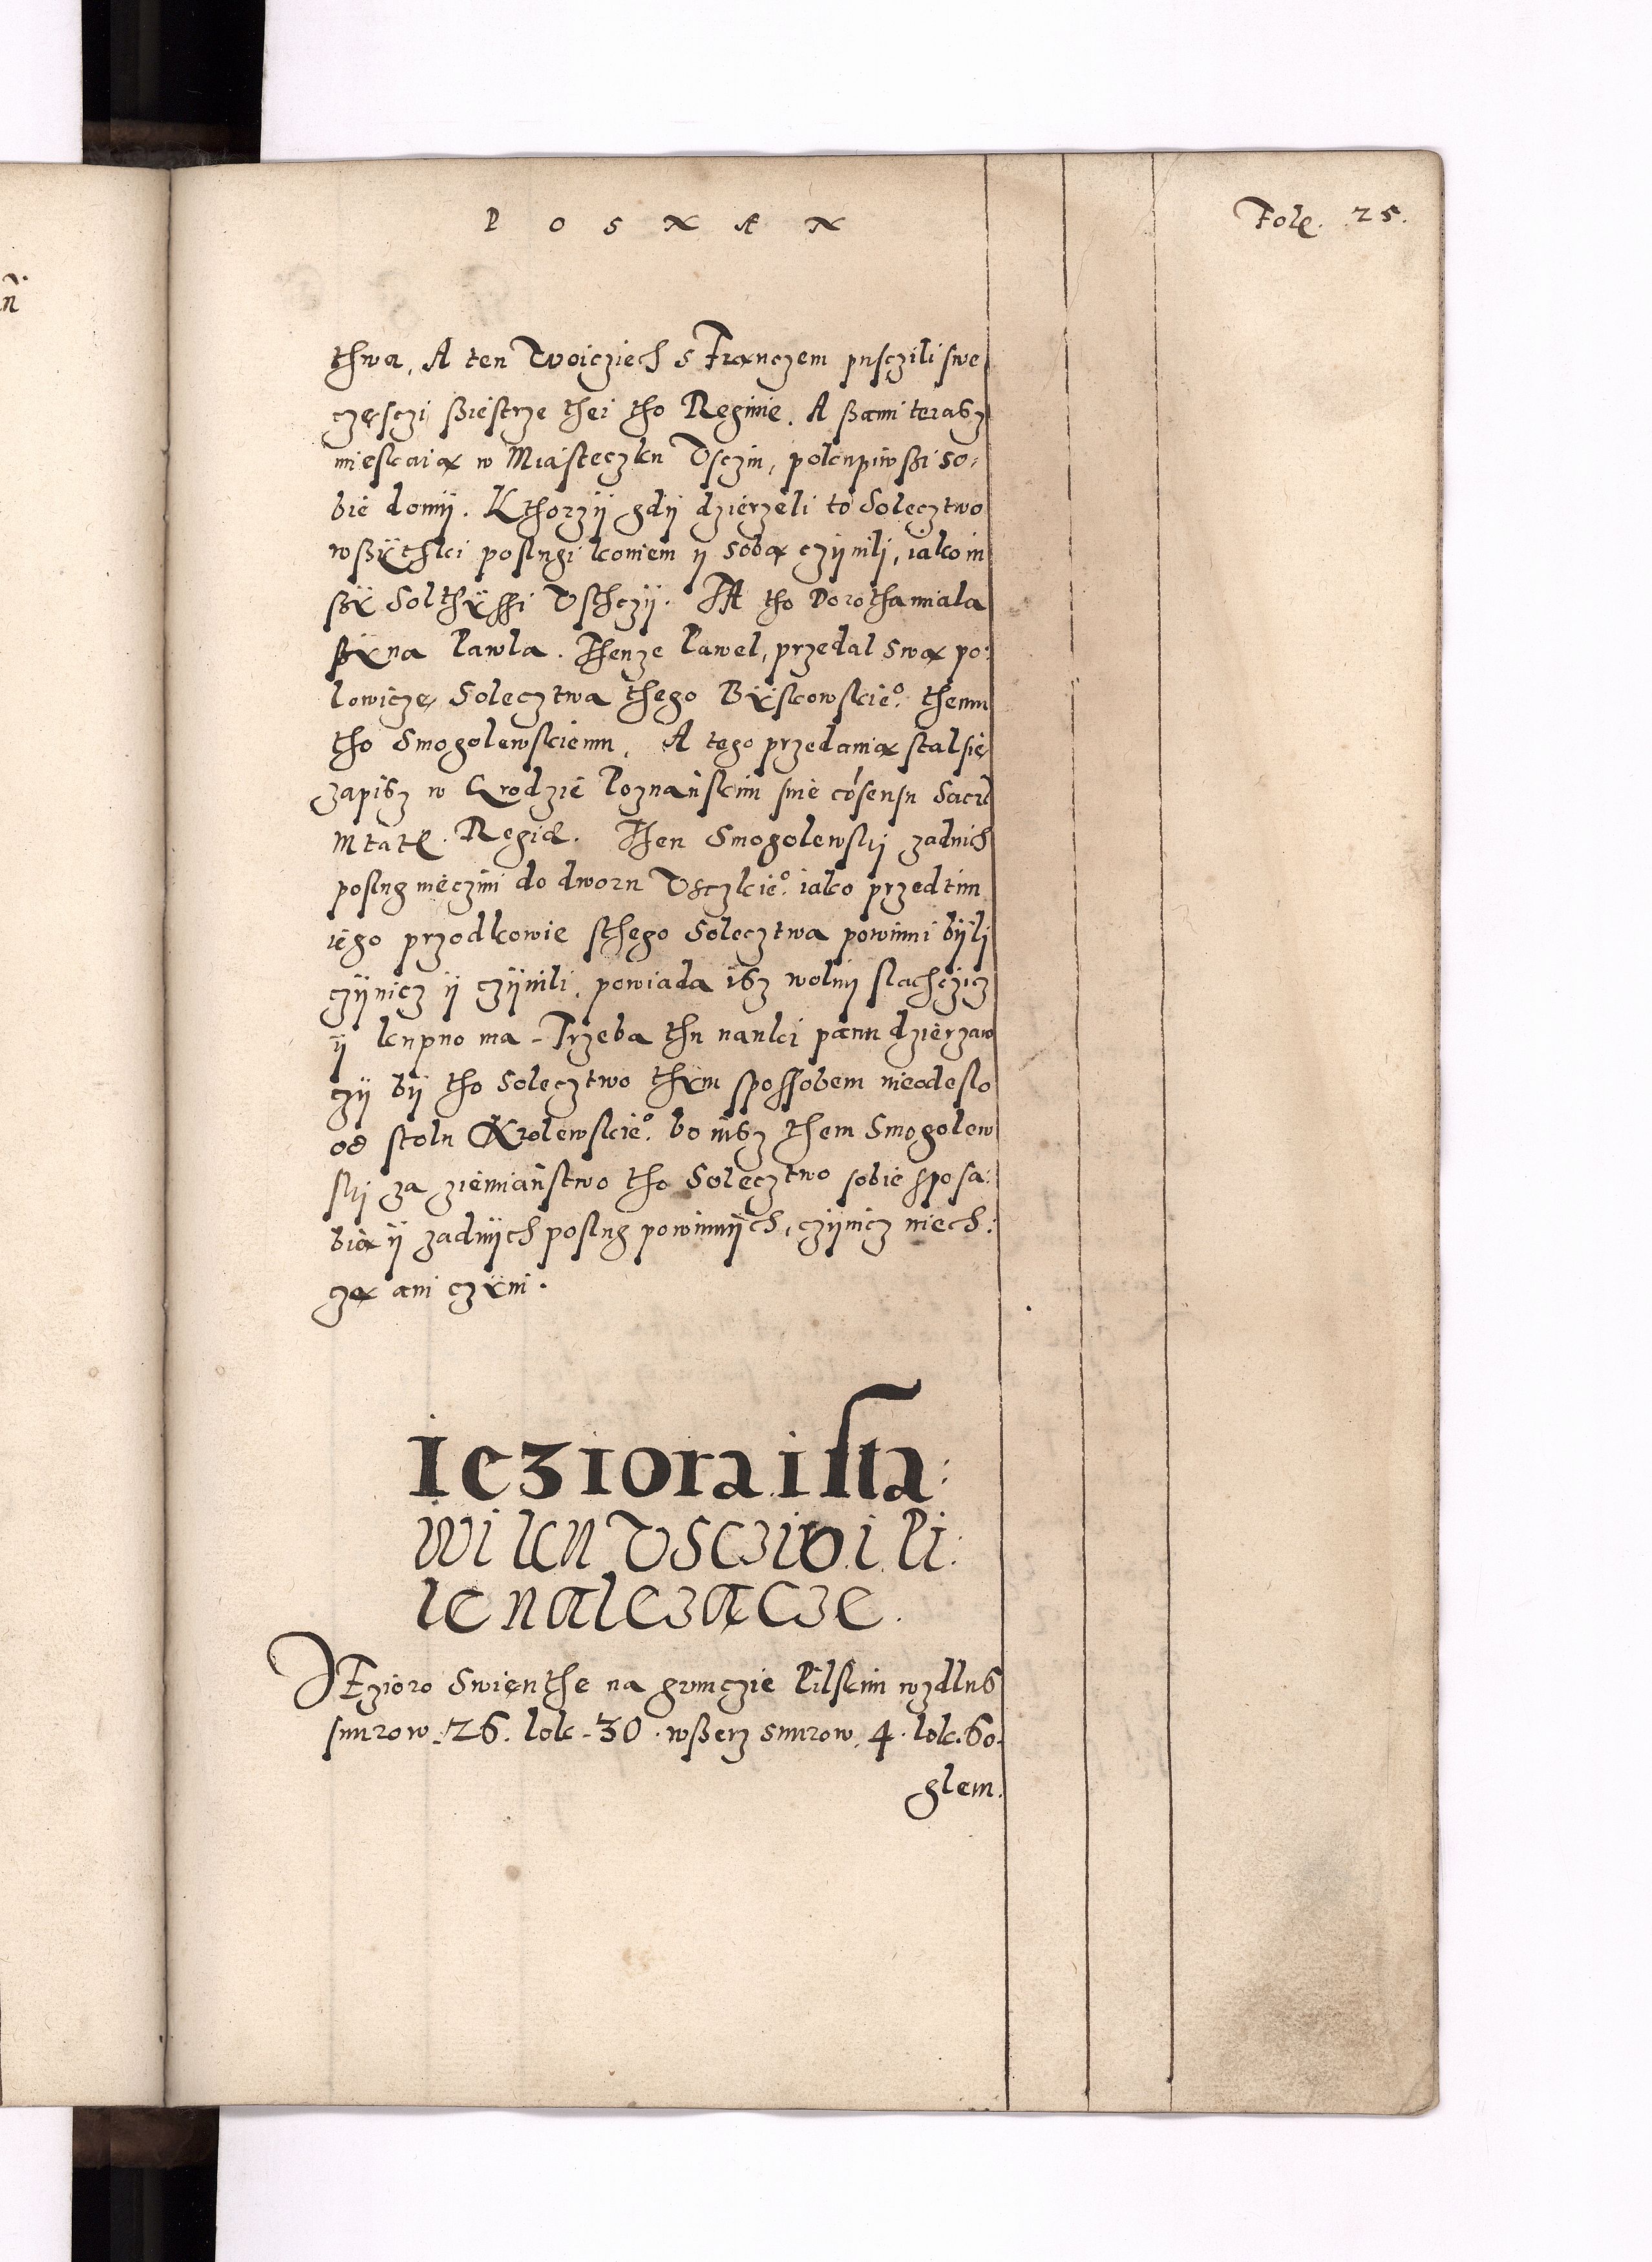 P O S N A N
Foł. 25.
thwa, A ten Woiciech s Franczem pusczili swe
częsczi ßiestrze thei tho Reginie. A ßami terasz
mieskaią w Miasteczku Usczin, pokupiwßi so:
bie domÿ. Kthorzÿ gdÿ dzierzeli to Solecztwo
wßÿthki poslugi koniem ÿ sobą czÿnili, iako in
ßÿ Solthÿssi Usthczÿ. A tho Dorotha miala
ßÿna Pawla. Thenze Pawel, przedal swą po:
lowicze, Solecztwa thego Bÿskowskie°. themu
tho Smogolewskiemu, A tego przedanią stalsie
zapisz w Grodzie Poznańskim sine cōsensu Sacrę
Mtatę. Regiæ. Then Smogolewskj zadnich
poslug nieczini do dworu Usczkie°. iako przedtim
iego przodkowie sthego Solecztwa powinni bÿlj
czÿnicz ÿ czÿnili, powiada isz wolnÿ slachczicz
ÿ kupno ma - Trzeba thu nauki panu dzierzaw
czÿ bÿ tho Solecztwo thÿm spossobem nieodeslo
od stolu Krolewskie°. bo nisz them Smogolew
skj za ziemiaństwo tho Solecztwo sobie sposa:
bią ÿ zadnÿch poslug powinnÿch, czÿnicz niech:
czą ani czÿni.
Iezioraista:
wiku Usczio i Pi:
le nalezącze.
JEzioro Swienthe na grunczie Pilskim wzdlus
snurow. 26. lok - 30. wßerz snurow. 4. lok. 60.
glem.